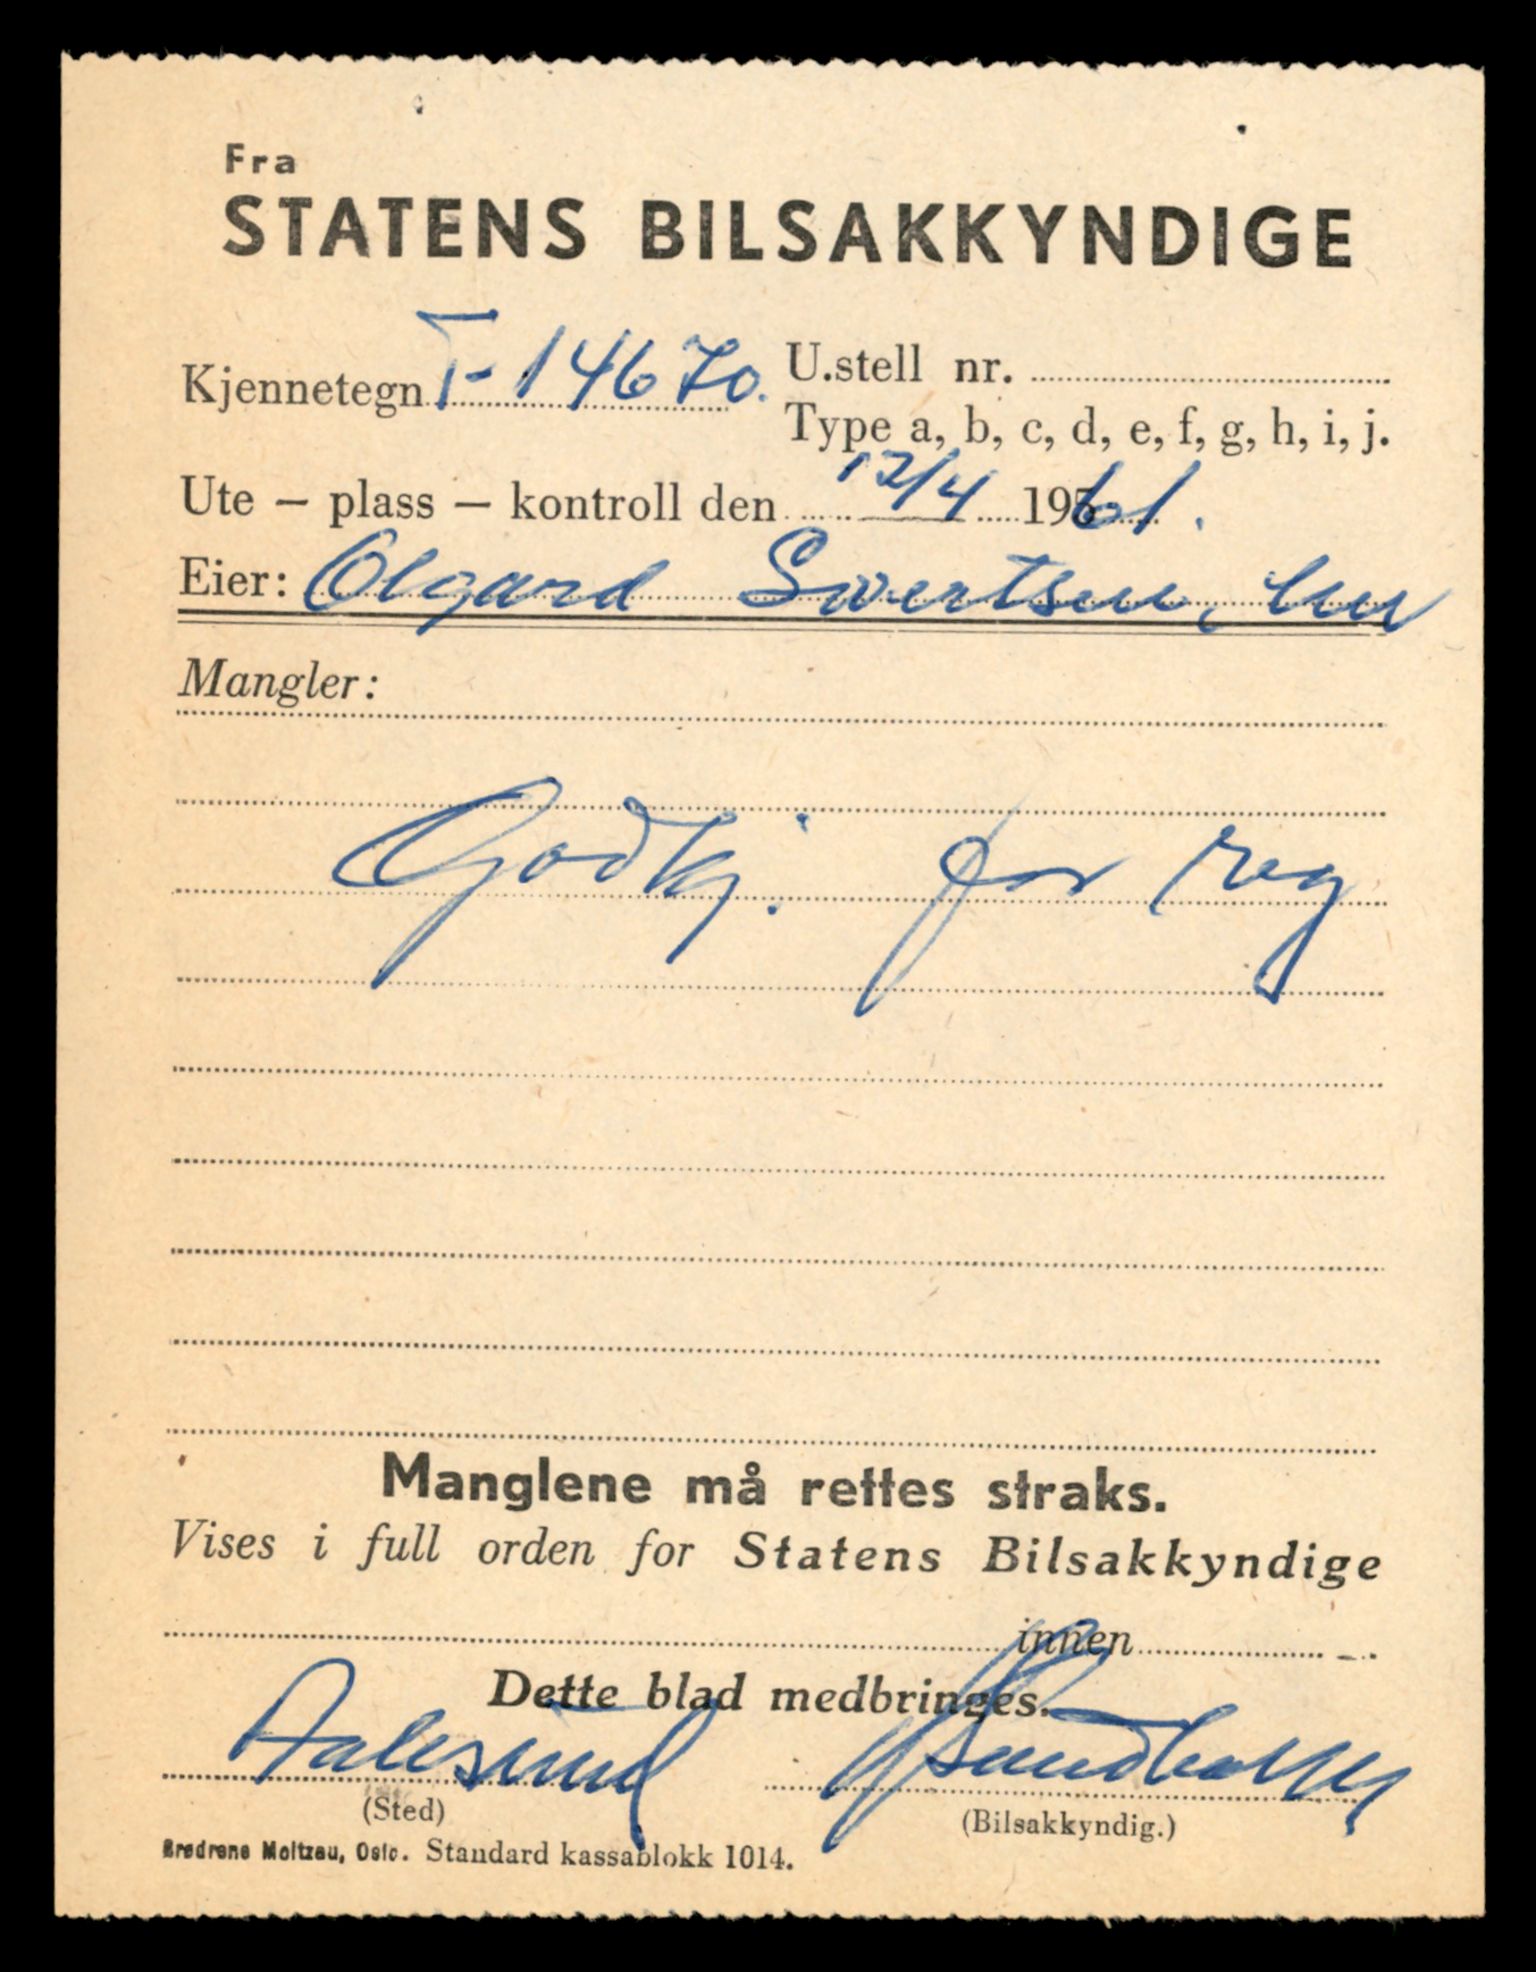 Fra
STATENS BILSAKKYNDIGE
Kjennetegn T-14670. U.stell nr.
Type a, b, c, d, e, f, g, h, i, j.
Ute – plass – kontroll den 12/4 1961.
Eier: Olgard Sivertsen,
Mangler:
Godkj. for reg
Manglene må rettes straks.
Vises i full orden for Statens Bilsakkyndige
innen
Dette blad medbringes.
Aalesund
(Sted) (Bilsakkyndig.)
Brødrene Moltzau, Oslo. Standard kassablokk 1014.